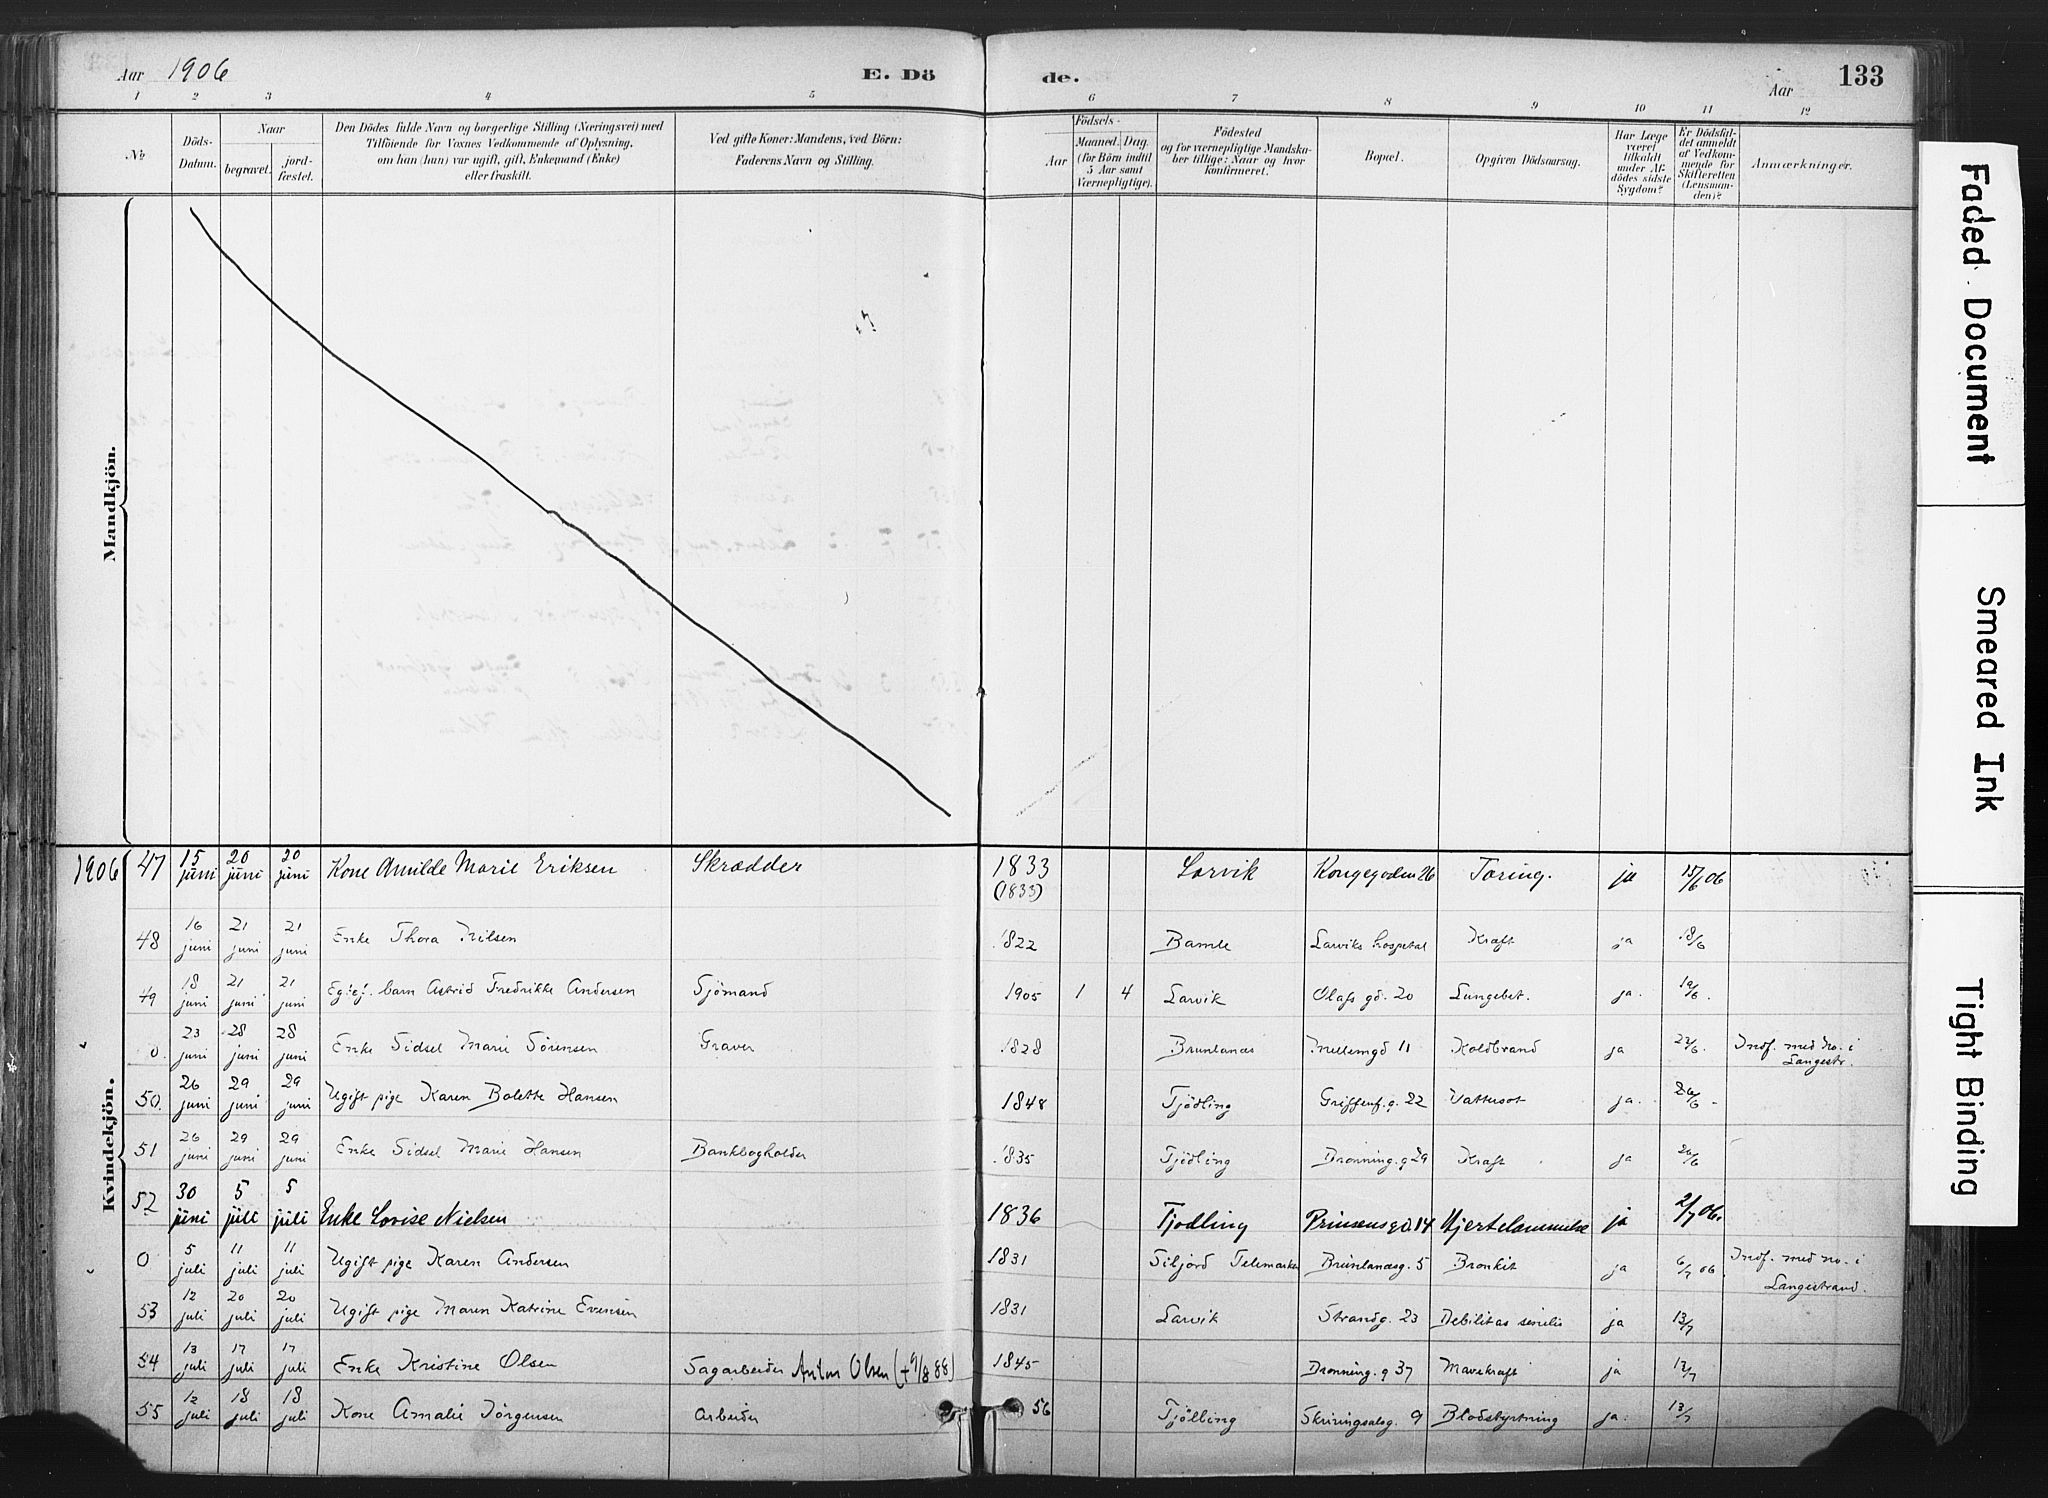 Aar 1906 E. Dö
de. Aar 133
1 2 3 4 5
6 7 8 9 10 11 12
No
Döds-
Datum.
Naar
begravet.
jord-
fæstet.
Den Dödes fulde Navn og borgerlige Stilling (Næringsvei) med
Tilföiende for Voxnes Vedkommende af Oplysning,
om han (hun) var ugift, gift, Enkemand (Enke)
eller fraskilt.
Ved gifte Koner: Mandens, ved Börn:
Faderens Navn og Stilling.
Födsels-
Aar
Maaned. Dag.
(for Börn indtil
5 Aar samt
Værnepligtige).
Födested
og for værnepligtige Mandska-
ber tillige: Naar og hvor
konfirmeret.
Bopæl.
Opgiven Dödsaarsag.
Har Læge
været
tilkaldt
under Af-
dödes sidste
Sygdom?
Er Dödsfal-
det anmeldt
af Vedkom-
mende for
Skifteretten
(Lensman-
den)?
Anmærkninger.
Mandkjön.
Kvindekjön.
1906 47 15 juni 20 juni 20 juni Kone Amilde Marie Eriksen Skrædder 1833 (1833) Larvik Kongegaden 26 Tæring. ja 15/6 06
48 16 juni 21 juni 21 juni Enke Thora Nilsen 1822 Bamle Larviks hospital Kræft ja 18/6
49 18 juni 21 juni 21 juni Egtef. barn Astrid Fredrikke Andersen Sjömand 1905 1 4 Larvik Olafs gd. 20 Lungebet. ja. 19/6.
0. 23 juni 28 juni 28 juni Enke Sidsel Marie Sörensen Graver 1828 Brunlanæs Mellemgd 11 Koldbrand ja 23/6. Indf. med No. i
Langestr.
50. 26 juni 29 juni 29 juni Ugift pige Karen Bolette Hansen 1848 Tjödling Griffenf. g. 22 Vattersot ja. 26/6 -
51 26 juni 29 juni 29 juni Enke Sidsel Marie Hansen Bankbogholder 1835 Tjödling Dronning. g 29 Kræft ja 26/6
52 30 juni 5 juli 5 juli Enke Lovise Nielsen 1836 Tjodling Prinsensgd. 14 Hjertelammelse ja 2/7 06.
0 5 juli 11 juli 11 juli Ugift pige Karen Andersen 1831 Siljord Telemarken Brunlanæsg. 5 Bronkit ja 6/7 06. Indf. med no. i
Langestrand.
53 12 juli 20 juli 20 juli Ugift pige Maren Katrine Evensen 1831 Larvik Strandg. 23 Debilitas senilis ja 13/7
54 13 juli 17 juli 17 juli Enke Kristine Olsen Sagarbeider Anton Olsen (+9/8 88) 1845 Dronning. g 37 Mavekræft ja 13/7
55 12 juli 18 juli 18 juli Kone Amalie Jörgensen Arbeider 56 Tjölling Skiringsalsg. 9 Blodstyrtning ja. 13/7
Faded Document
Smeared Ink
Tight Binding